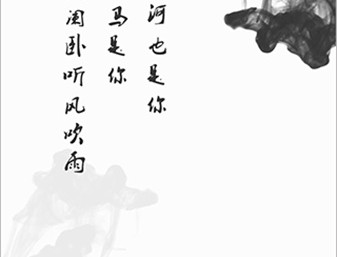 河也是你
马是你
阑卧听风吹雨